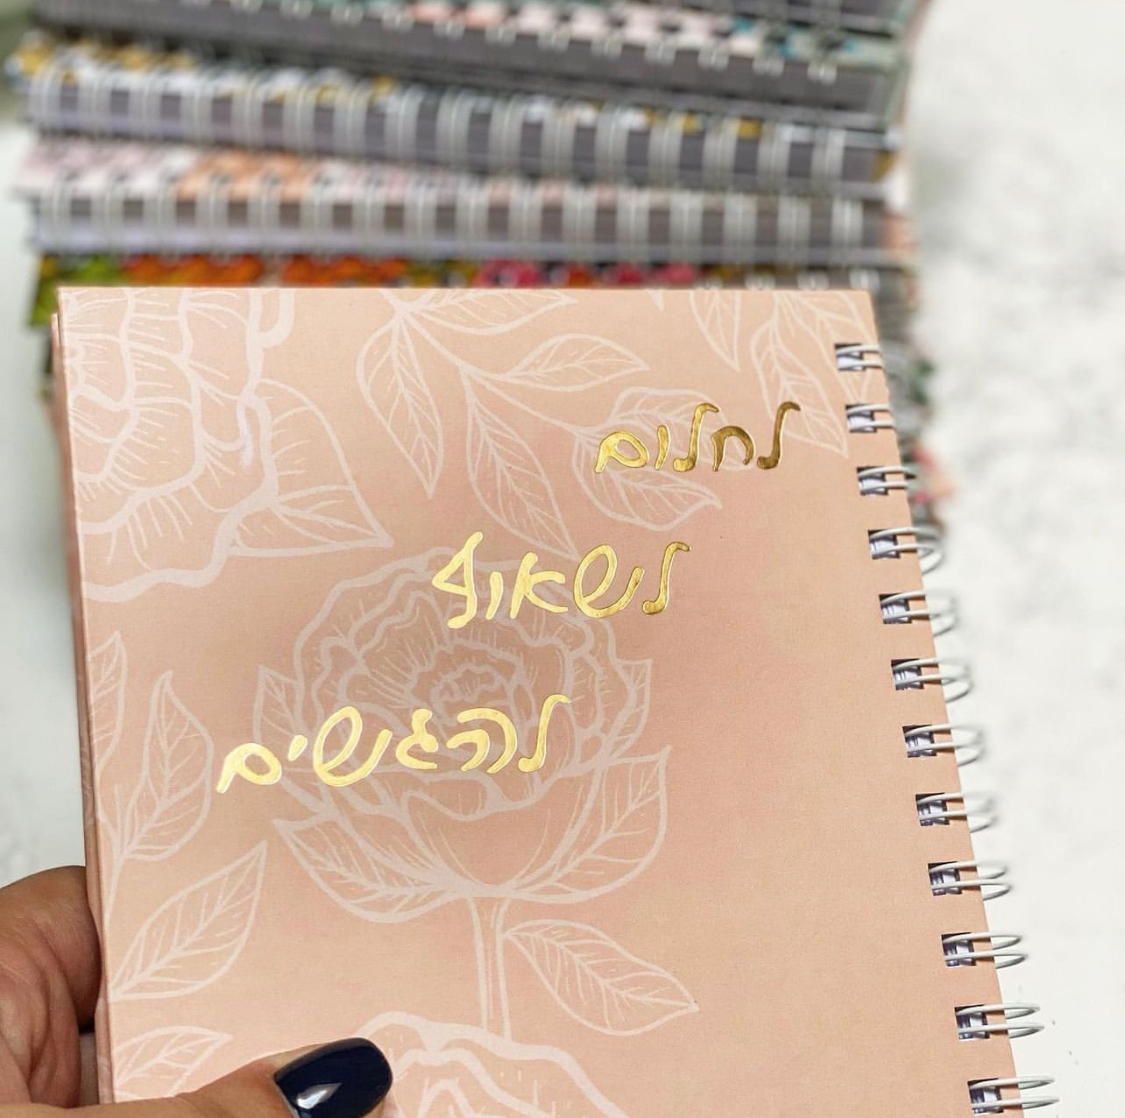 לחלום
לשאוף
להגשים